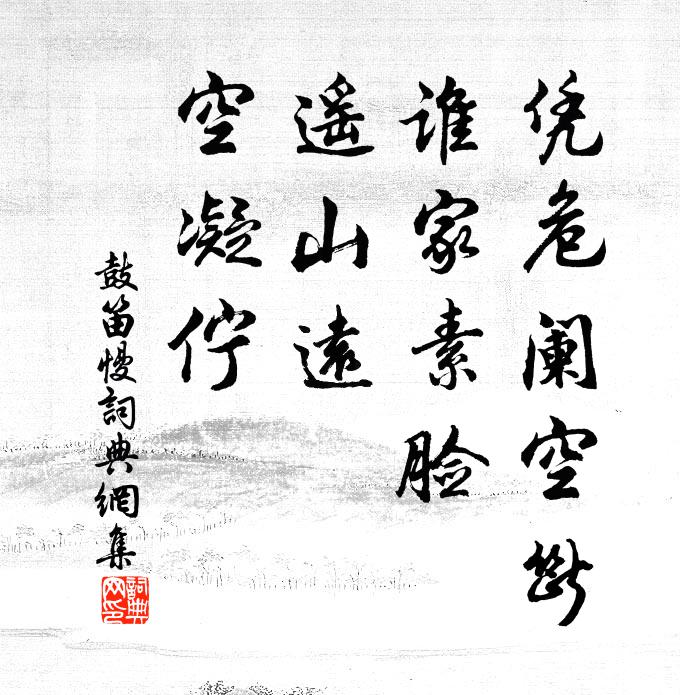 凭危阑空断
谁家素脸
遥山远
空凝伫
鼓笛慢詞典網集
詞典
网印